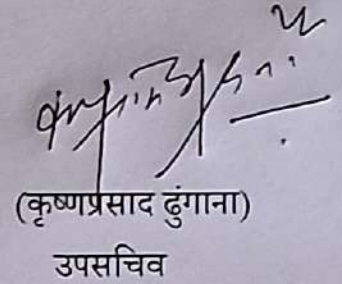 (कृष्णप्रसाद ढुंगाना)
उपसचिव